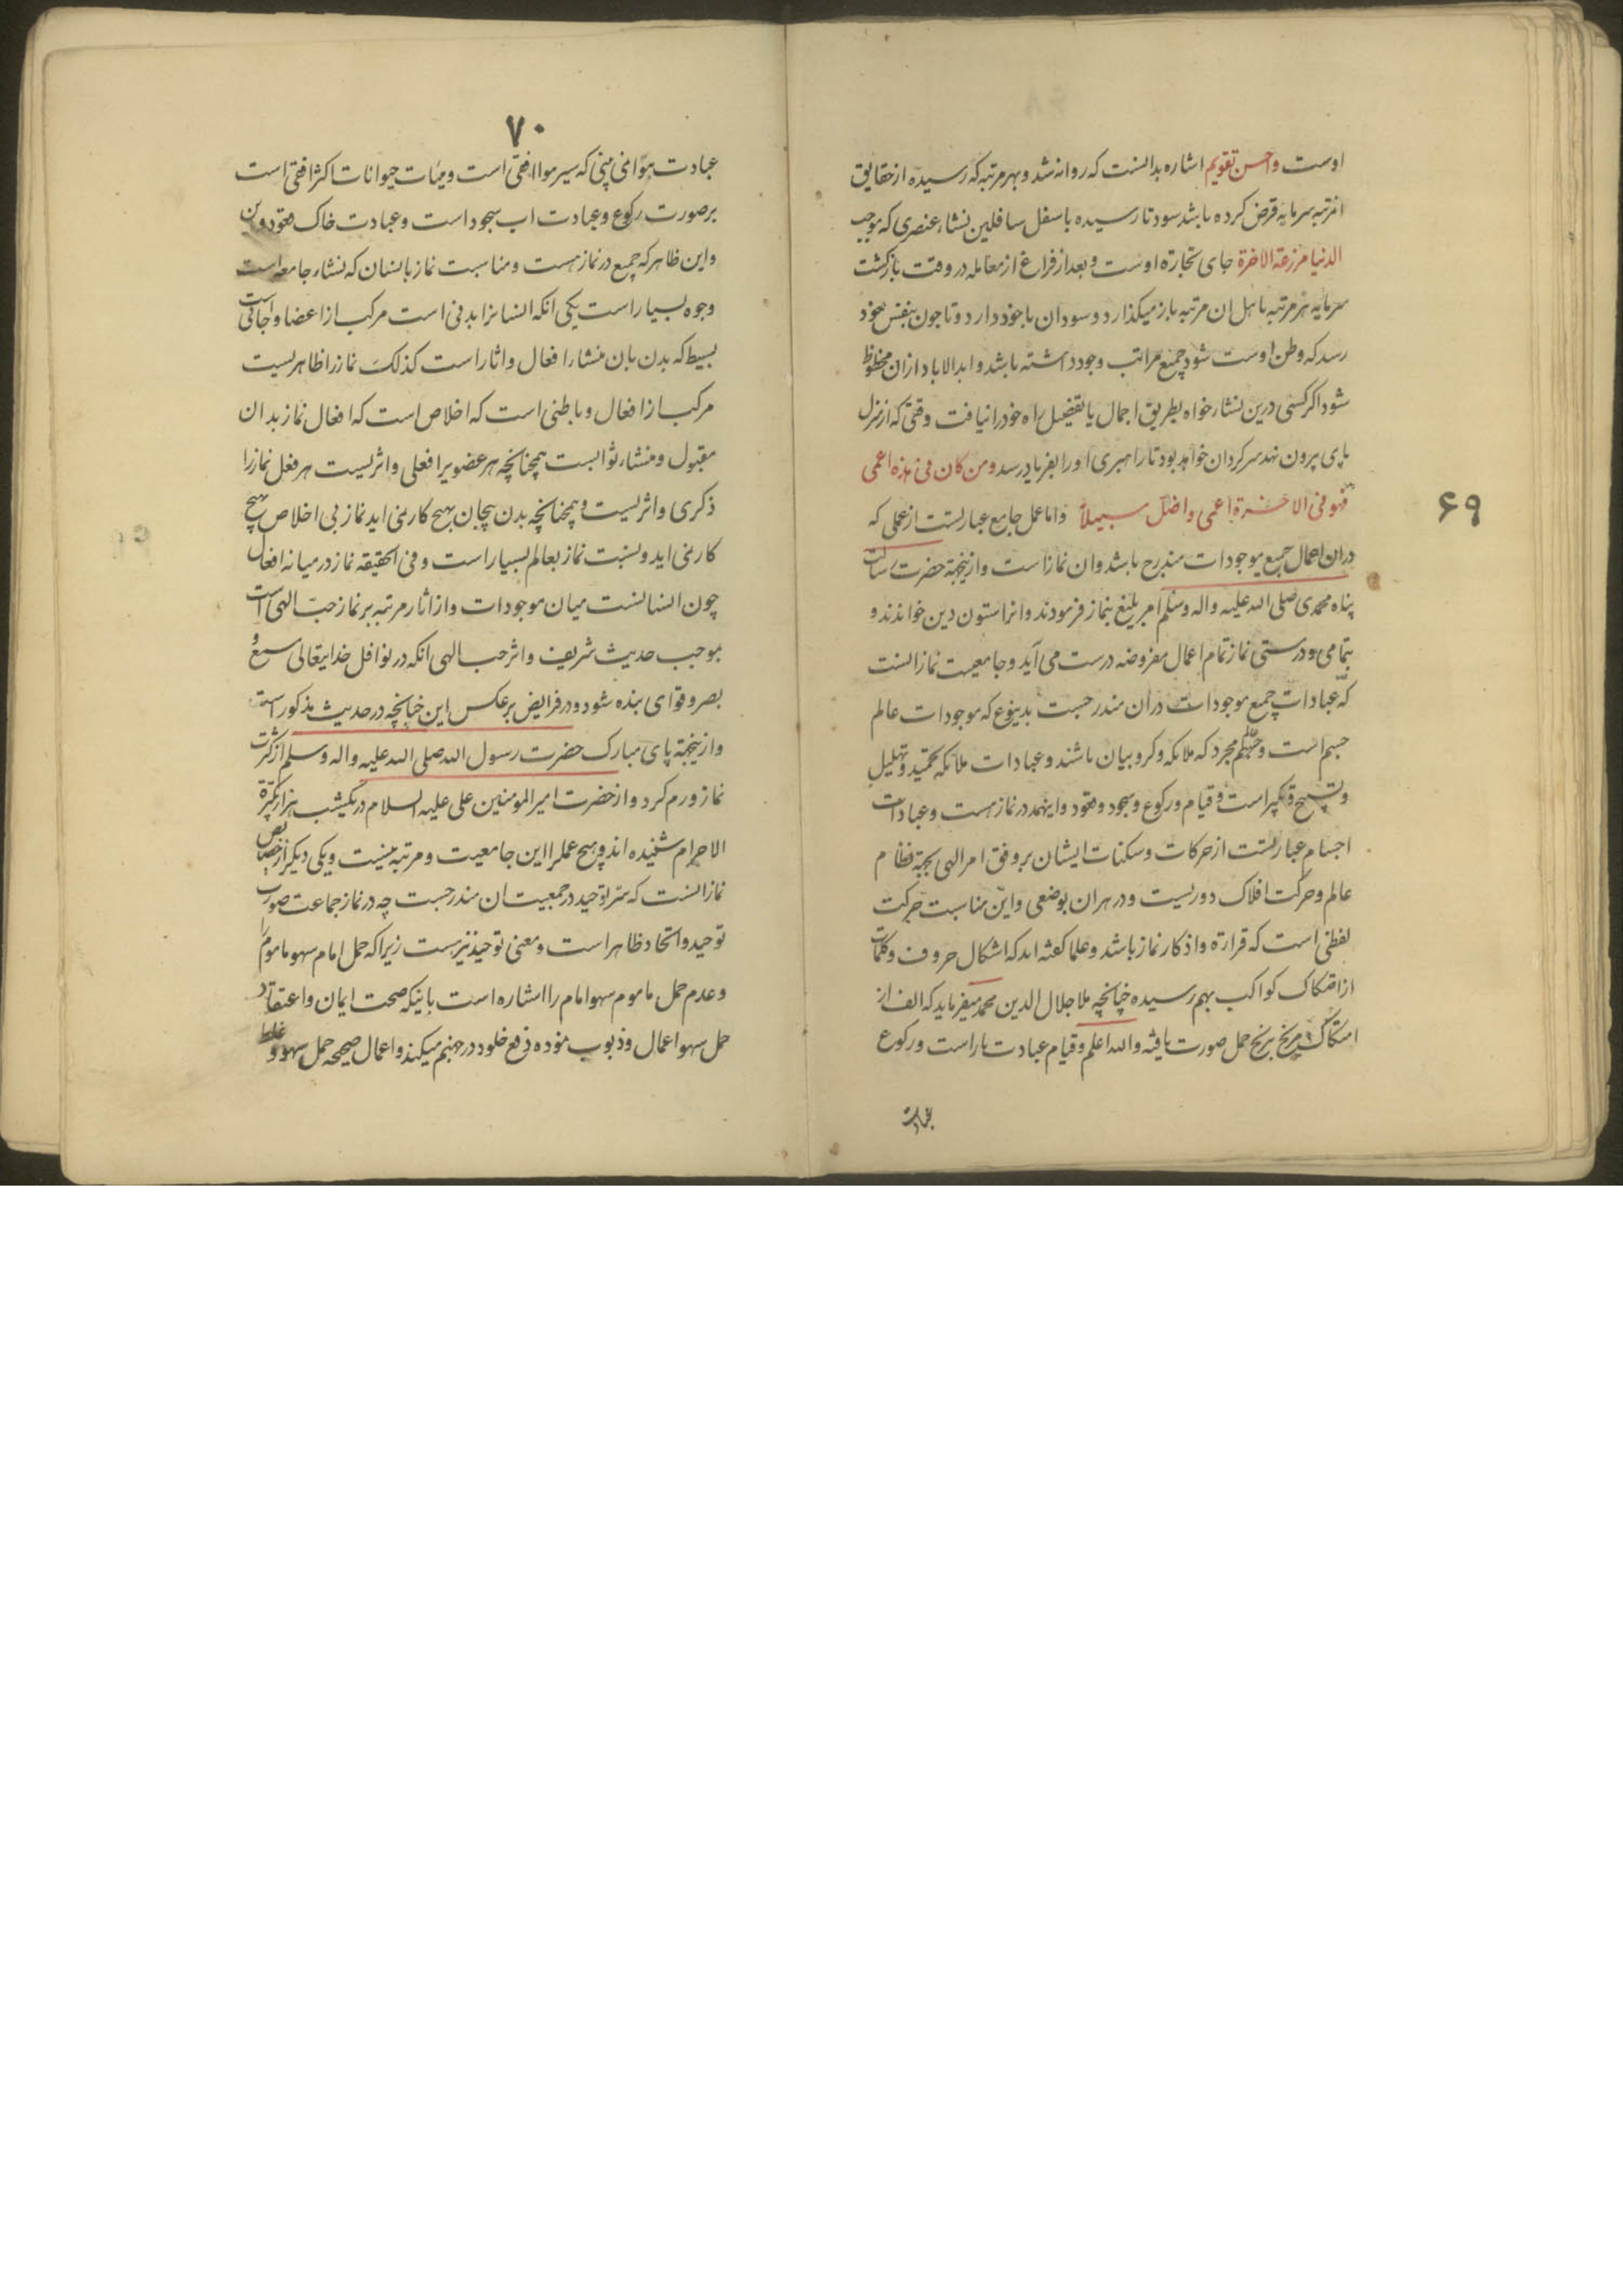 ۶۹
اوست و احسن تقویم اشاره بدانست که روانه شد و بهر مرتبه که رسیده از حقایق
انمرتبه سرمایه قرض کرده باشد سود تا رسیده باسفل سافلین نشاء عنصری که بموجب
الدنیا مزرعة الاخرة جای تجارة اوست و بعد از فراغ از معامله در وقت بازگشت
سرمایه هر مرتبه باهل ان مرتبه باز میکذارد و سود ان باخود دارد و تا چون بنفس خود
رسد که وطن اوست شود جمیع مراتب وجود داشته باشد و ابدالاباد ازان محظوظ
شود اکر کسی درین نشاء خواه بطریق اجمال یا تفصیل راه خود را نیافت وقتی که از منزل
پای بیرون نهد سرکردان خواهد بود تا راهبری او را بفریاد رسد ومن کان فی هذه اعمی
فهو فی الاخرة اعمی واضل سبیلاً و اما عمل جامع عبارتست از عملی که
دران اعمال جمیع موجودات مندرج باشد و ان نماز است و ازینجهة حضرت رسالت
پناه محمدی صلی الله علیه واله وسلم امر بلیغ بنماز فرمودند و انرا ستون دین خواندند و
بتمامی و درستی نماز تمام اعمال مفروضه درست می آید و جامعیت نماز انست
که عبادات جمیع موجودات دران مندرجست بدینوع که موجودات عالم
جسم است و مجرد که ملائکه و کروبیان باشند و عبادات ملائکه تحمید و تهلیل
و تسبیح و تکبیر است و قیام و رکوع و سجود و قعود و اینهمه در نماز هست و عبادات
اجسام عبارتست از حرکات و سکنات ایشان بر وفق امر الهی بجهة نظام
عالم و حرکت افلاک دوریست و در هر ان بوضعی و این مناسبت حرکت
لفظی است که قرائة و اذکار نماز باشد و علما کفته اند که اشکال حروف و کلمات
از اصکاک کواکب بهم رسیده چنانچه ملا جلال الدین محمد میفرماید که الف از
مریخ ببرج حمل صورت یافته والله اعلم و قیام عبادت نار است و رکوع
عبادت
۷۰
عبادت هوا نمی بینی که سیر هوا افقی است و هیئات حیوانات اکثر افقی است
بر صورت رکوع و عبادت اب سجود است و عبادت خاک قعود
و این ظاهر که جمیع در نماز هست و مناسبت نماز بانسان که نشاء جامعه است
وجوه بسیار است یکی انکه انسانرا بدنی است مرکب از اعضا و جانی است
بسیط که بدن بان منشاء افعال و اثار است کذلک نماز را ظاهریست
مرکب از افعال و باطنی است که اخلاص است که افعال نماز بدان
مقبول و منشاء ثوابست همچنانچه هر عضویرا فعلی و اثریست هر فعل نماز را
ذکری و اثریست و همچنانچه بدن بیجان بهیچ کار نمی اید نماز بی اخلاص بهیچ
کار نمی اید و نسبت نماز بعالم بسیار است و فی الحقیقه نماز در میانه افعال
چون انسانست میان موجودات و از اثار مرتبه بر نماز حب الهی است
بموجب حدیث شریف و اثر حب الهی انکه در نوافل خدایتعالی سمع و
بصر و قوای بنده شود و در فرایض بر عکس این چنانچه در حدیث مذکور است
و ازینجهة پای مبارک حضرت رسول الله صلی الله علیه واله وسلم از کثرت
نماز ورم کرد و از حضرت امیرالمومنین علی علیه السلام در یکشب هزار تکبیرة
الاحرام شنیده اند و هیچ عمل را این جامعیت و مرتبه نیست و یکی دیکر از خصایص
نماز انست که سر توحید در جمعیت ان مندرجست چه در نماز جماعت صورت
توحید و اتحاد ظاهر است و معنی توحید نیز هست زیرا که حمل امام سهو ماموم را
و عدم حمل ماموم سهو امام را اشاره است باینکه صحت ایمان و اعتقاد
حمل سهو اعمال و ذنوب نموده دفع خلود در جهنم میکند و اعمال صحیحه حمل سهو و